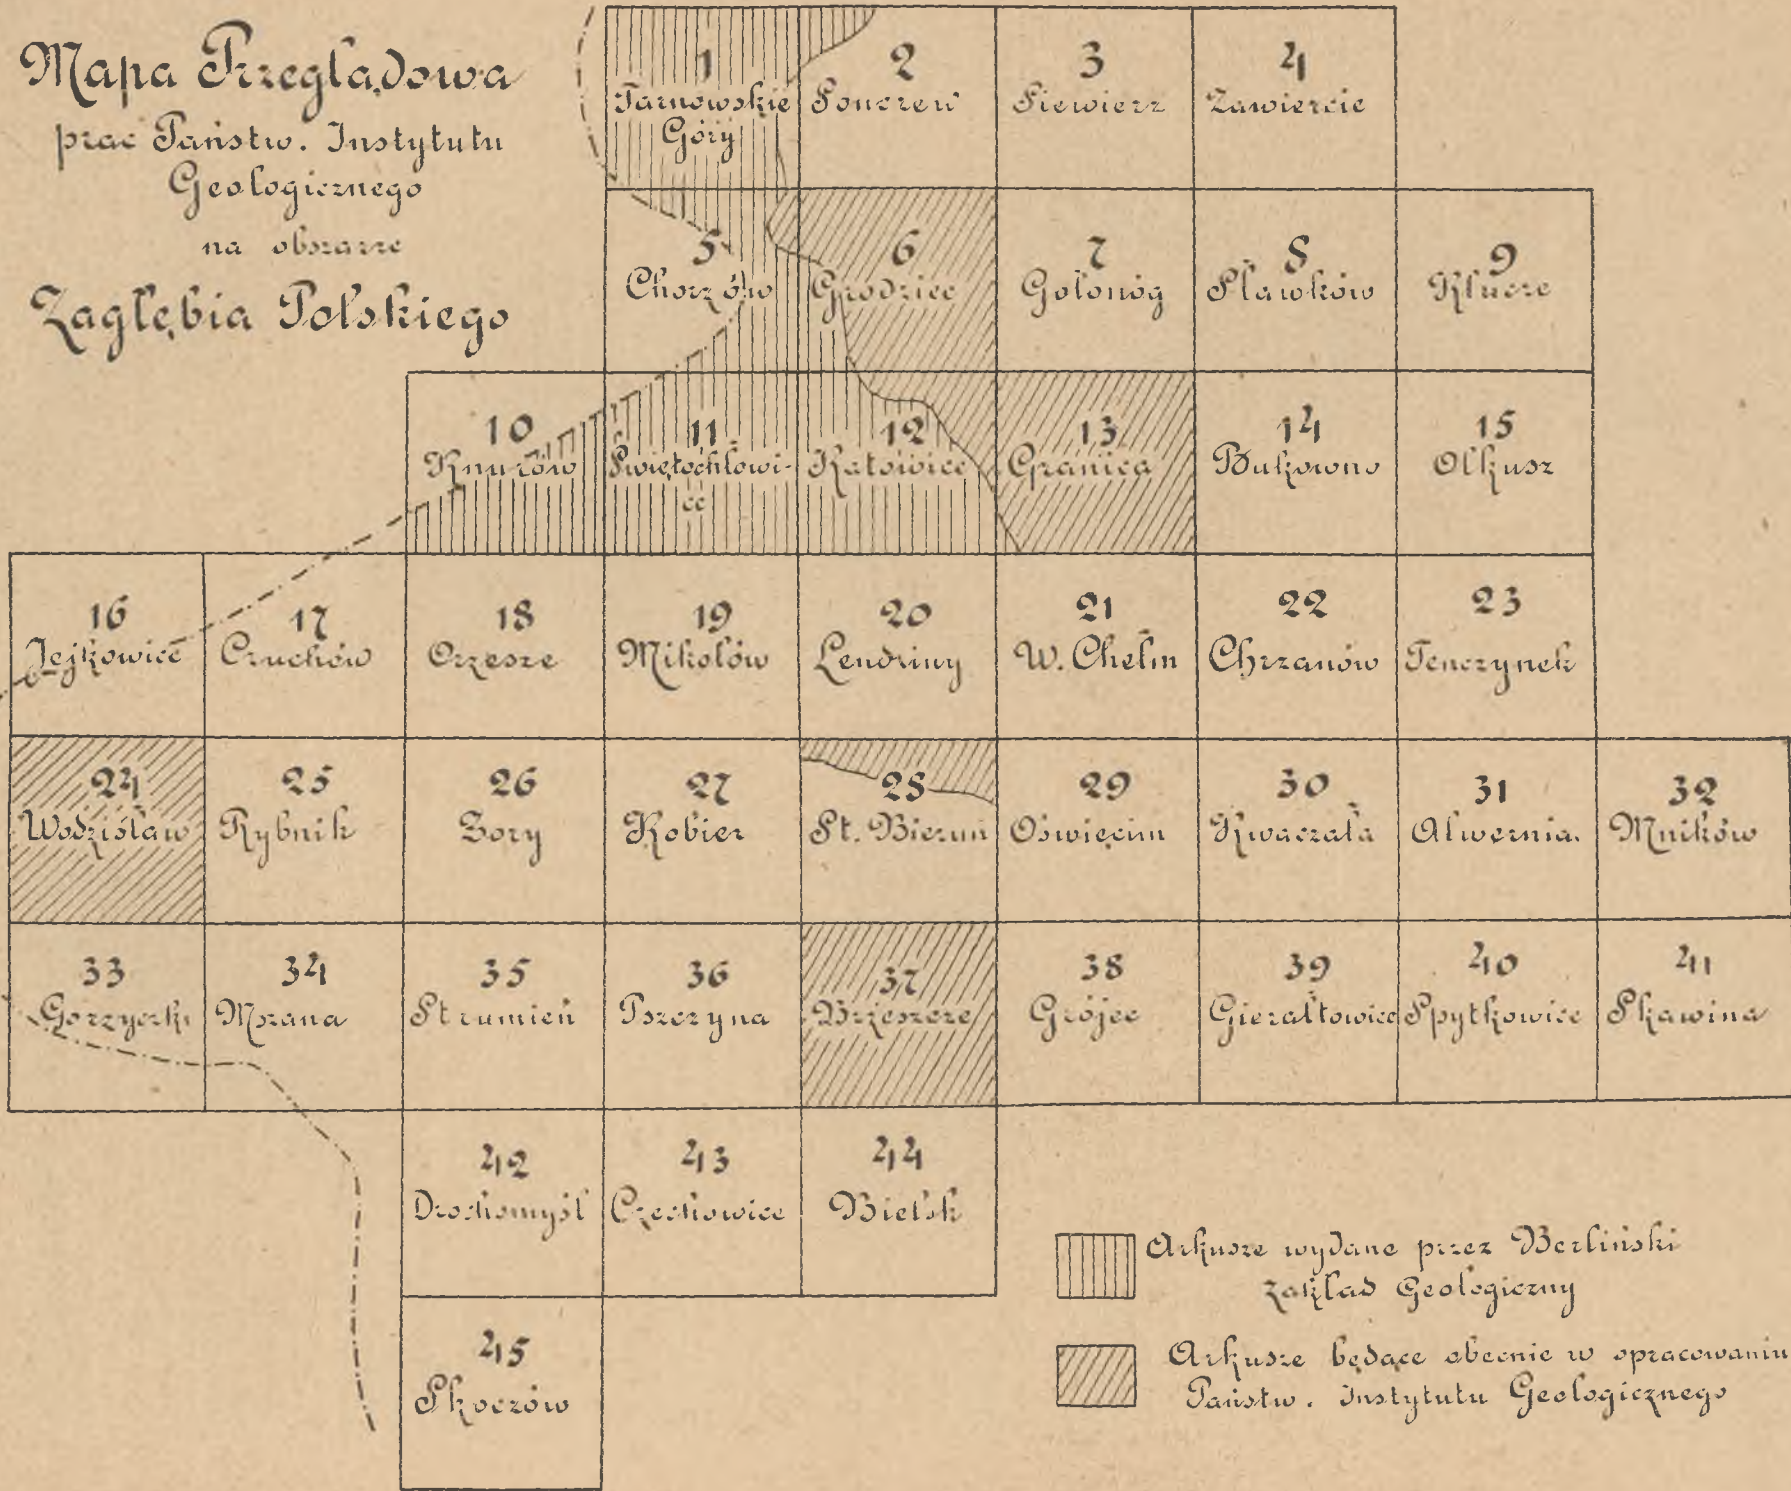 Mapa Przeglądowa
prac Państw. Instytutu
Geologicznego
na obszarze
Zagłębia Polskiego
1
Tarnowskie
Góry
2
Sonczew
3
Siewierz
4
Zawiercie
5
Chorzów
6
Grodziec
7
Gołonóg
8
Sławków
9
Klucze
10
Knurów
11
Świętochłowi-
ce
12
Katowice
13
Granica
14
Bukowno
15
Olkusz
16
Jejkowice
17
Czuchów
18
Orzesze
19
Mikołów
20
Lendziny
21
W. Chełm
22
Chrzanów
23
Tenczynek
24
Wodzisław
25
Rybnik
26
Żory
27
Kobier
28
St. Bieruń
29
Oświęcim
30
Kwaczała
31
Alwernia.
32
Mników
33
Gorzyczki
34
Mszana
35
Strumień
36
Pszczyna
37
Brzeszcze
38
Grójec
39
Gierałtowice
40
Spytkowice
41
Skawina
42
Drochomyśl
43
Czechowice
44
Bielsk
45
Skoczów
Arkusze wydane przez Berliński
Zakład Geologiczny
Arkusze będące obecnie w opracowaniu
Państw. Instytutu Geologicznego